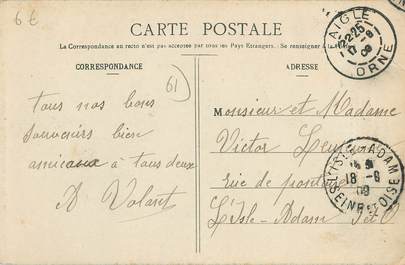 6 €
CARTE POSTALE
La Correspondance au recto n'est pas acceptée par tous les Pays Etrangers. Se renseigner à la
CORRESPONDANCE
ADRESSE
61
AIGLE
17 -9
09
ORNE
Tous nos bons
souvenirs bien
amicaux à tous deux
A Volant
Monsieur et Madame
Victor
rue de pontoise
L'Isle-Adam S et O
L'ISLE-ADAM
18 -9
09
SEINE-ET-OISE